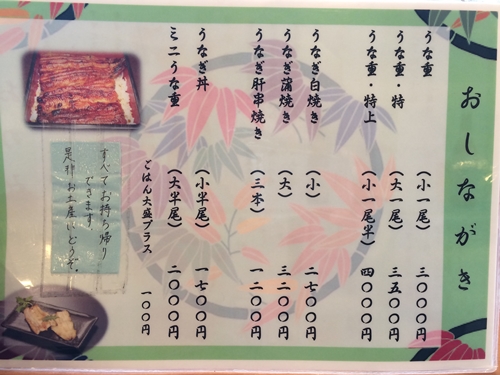 おしながき
うな重 （小一尾） 三〇〇〇円
うな重・特 （大一尾） 三五〇〇円
うな重・特上 （小一尾半） 四〇〇〇円
うなぎ白焼き （小） 二七〇〇円
うなぎ蒲焼き （大） 三二〇〇円
うなぎ肝串焼き （三本） 一二〇〇円
うなぎ丼 （小半尾） 一七〇〇円
ミニうな重 （大半尾） 二〇〇〇円
ごはん大盛プラス 一〇〇円
すべてお持ち帰り
できます
是非お土産にどうぞ。